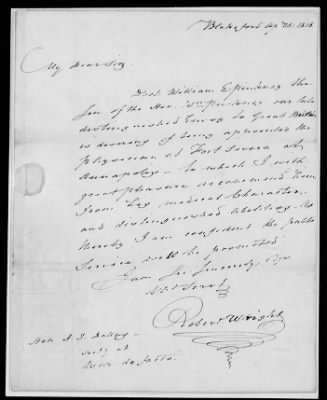 Blakeford Sep 25. 1815
My Dear Sir
Doct William E Pinkney the
Son of the Hon. Wm Pinkney our late
distinguished Envoy to Great Britain
is desirous of being appointed the
Physician at Fort Severn at
Annapolis to which I with
great pleasure recommend him
from his medical Character,
and distinguished Abilitys
thereby I am confident the public
Service will be promoted
I am Sir Sincerely Yr
Obt Servt
Robert Wright
Hon. A. J. Dallas